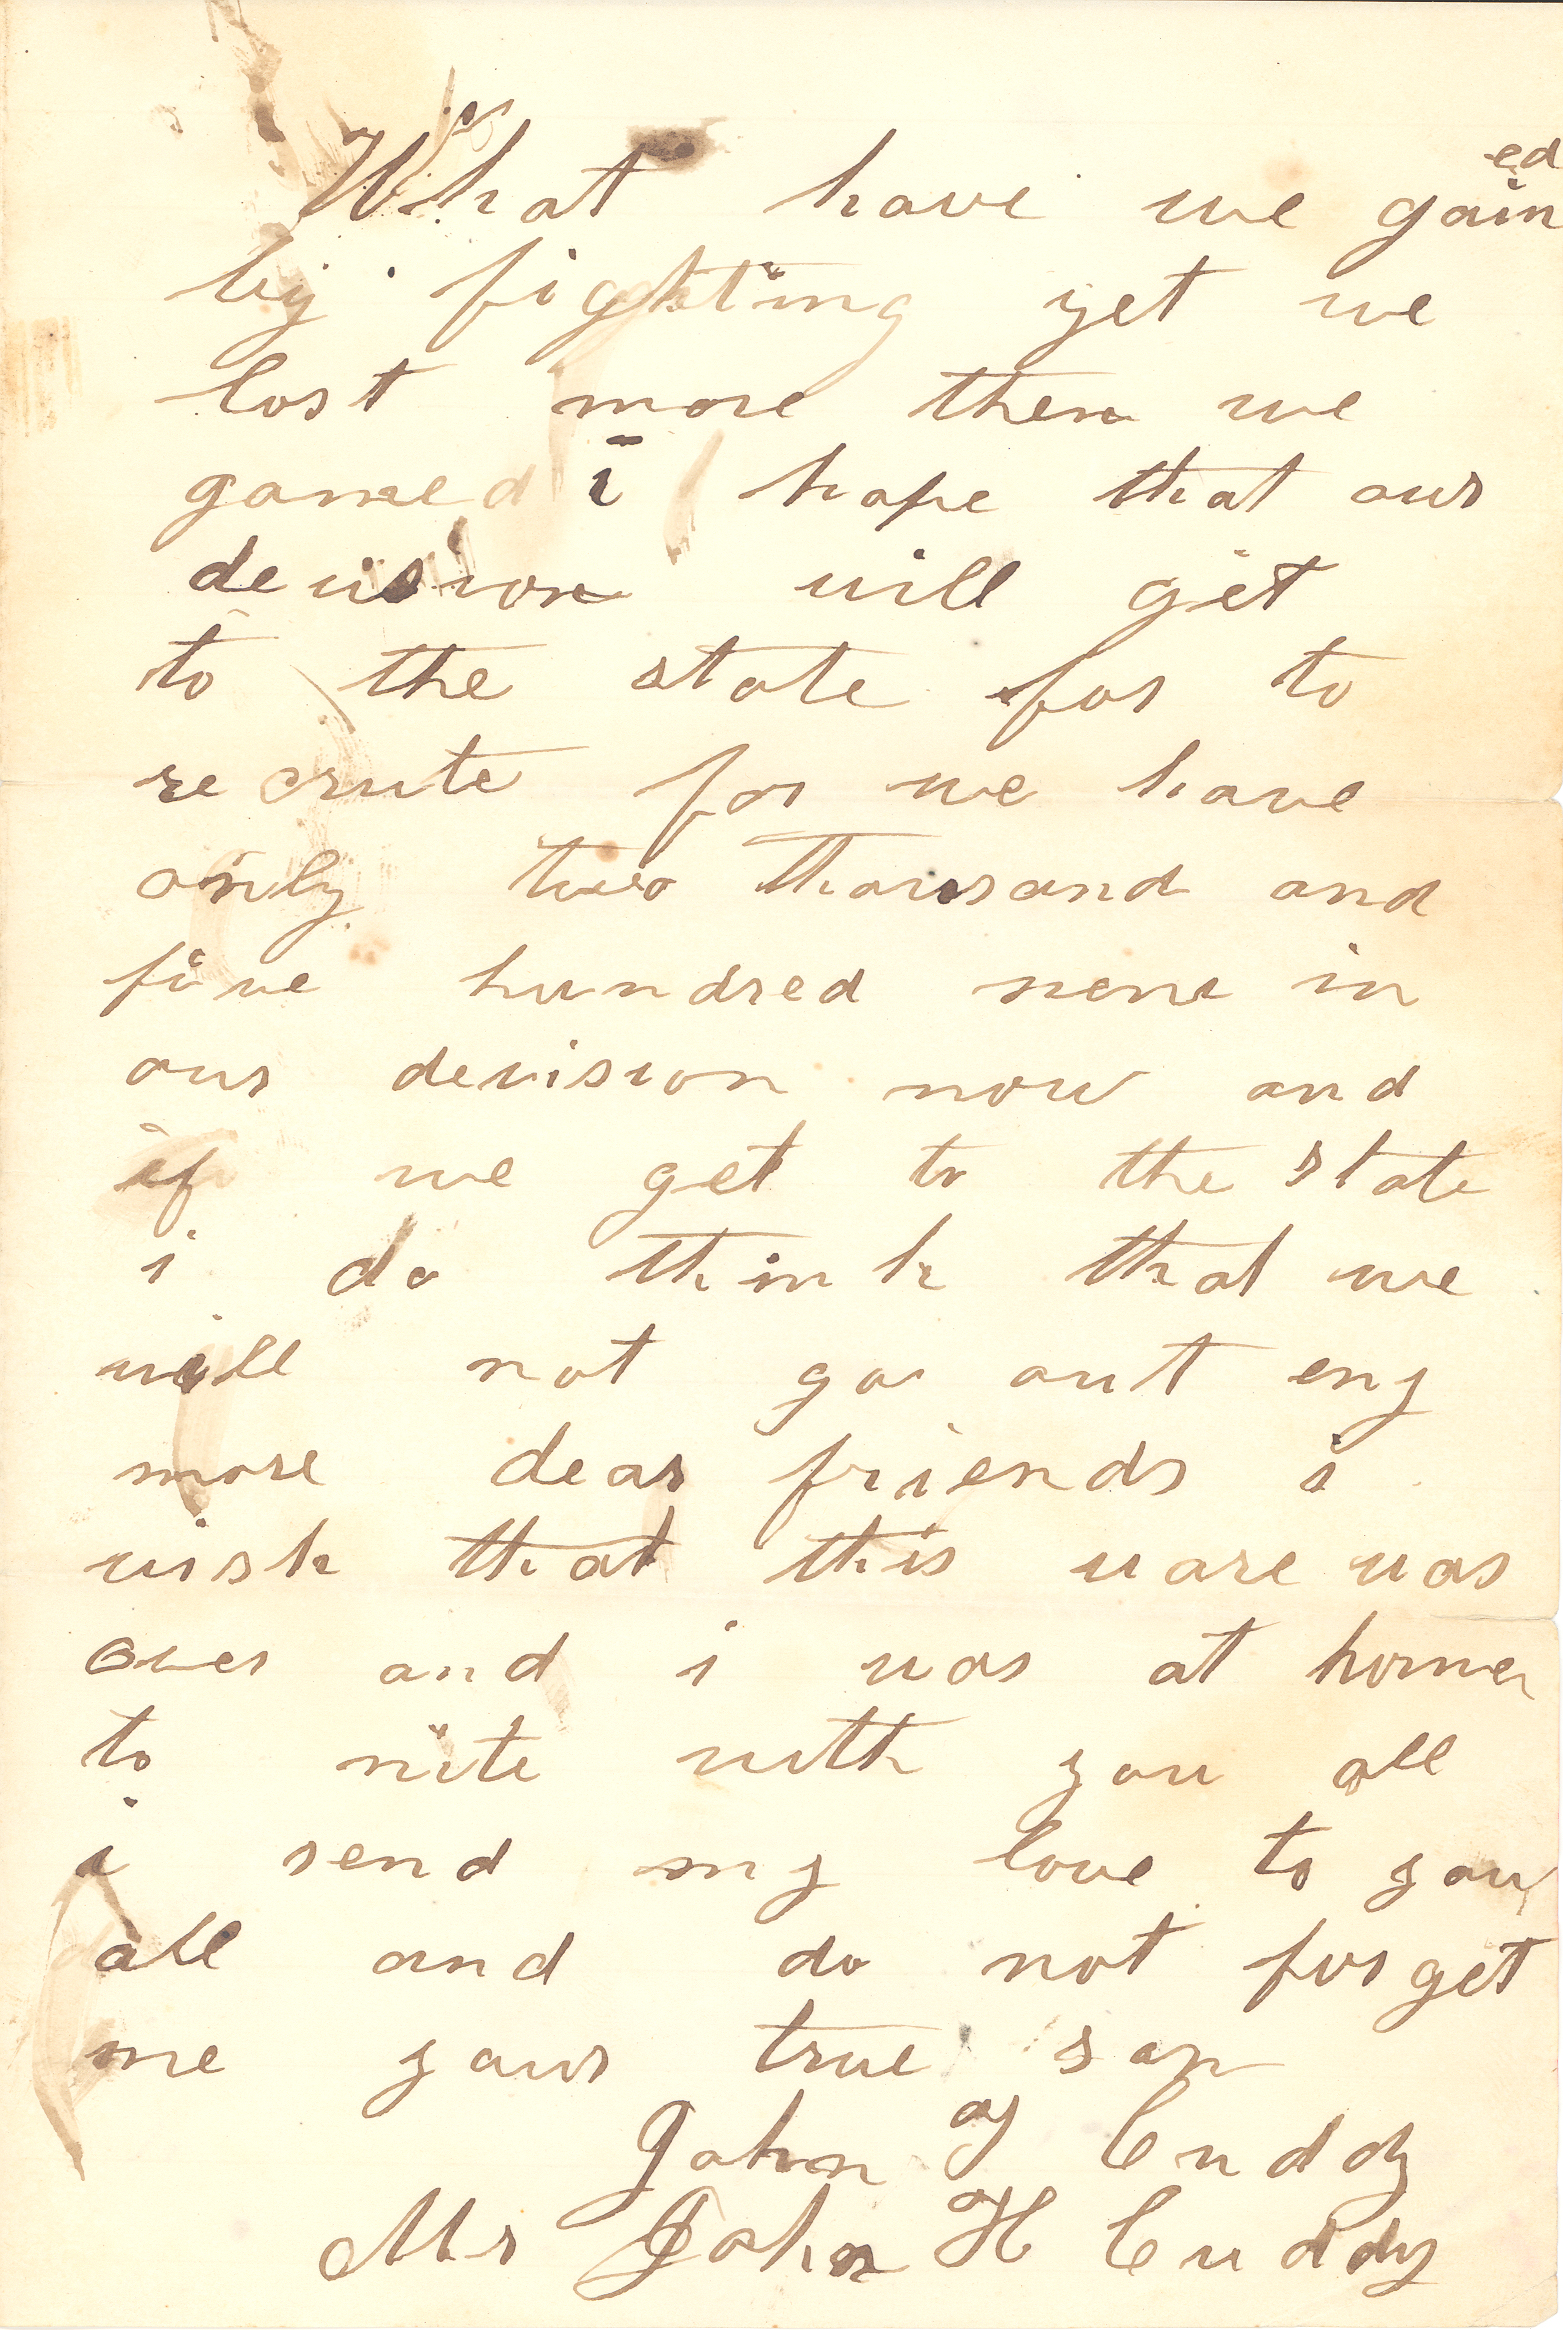 What have we gained
by fighting yet we
lost more then we
gained i hope that our
devision will get
to the state for to
recrute for we have
only two thousand and
five hundred men in
our devision now and
if we get to the state
i do think that we
will not go out eny
more dear friends i
wish that this ware was
over and i was at home
to nite with you all
i send my love to you
all and do not forget
me your true son
John Cuddy
Mr John H Cuddy